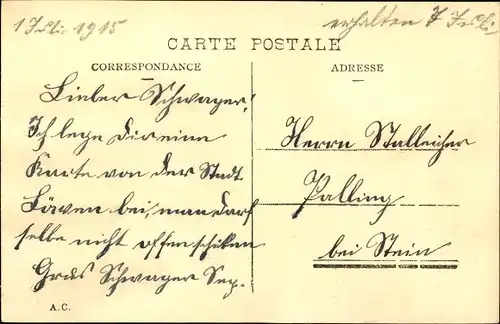 1 Juli 1915
erhalten 7 Juli
CARTE POSTALE
CORRESPONDANCE
ADRESSE
Lieber Schwager!
Ich lege dir eine
Karte von der Stadt
Löven bei, man darf
selbe nicht offen schiken
Grus Schwager Sep.
Herrn Stalleicher
Palling
bei Stein
A.C.